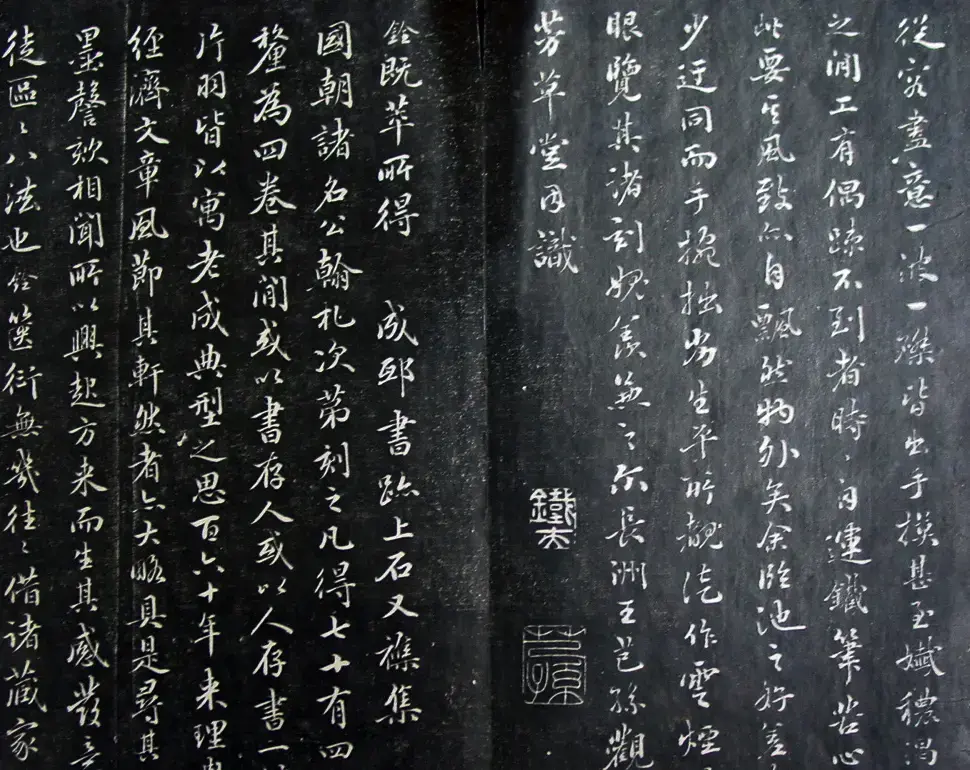 從容盡意一波一磔皆出手摸甚至孅穠渴
之間工有偶疎不到者時〻自運鐵筆苦心
此要其風致亦自飄然物外矣余臨池之好差
少迂同而手搦拙劣生平所觀徒作雲煙
眼覽其諸刻媿羨兼之尔長洲王芑孫觀
芳草堂因識
鐵夫
芑孫
銓既萃所得 成邸書跡上石又雜集
國朝諸名公翰札次第刻之凡得七十有四
釐為四卷其間或以書存人或以人存書一
片羽皆以寓老成典型之思百六十年來理
經濟文章風節其軒然者亦大略具是尋其
墨謦欬相聞所以興起方來而生其感發
徒區〻八法也銓篋衍無幾往〻借諸藏家